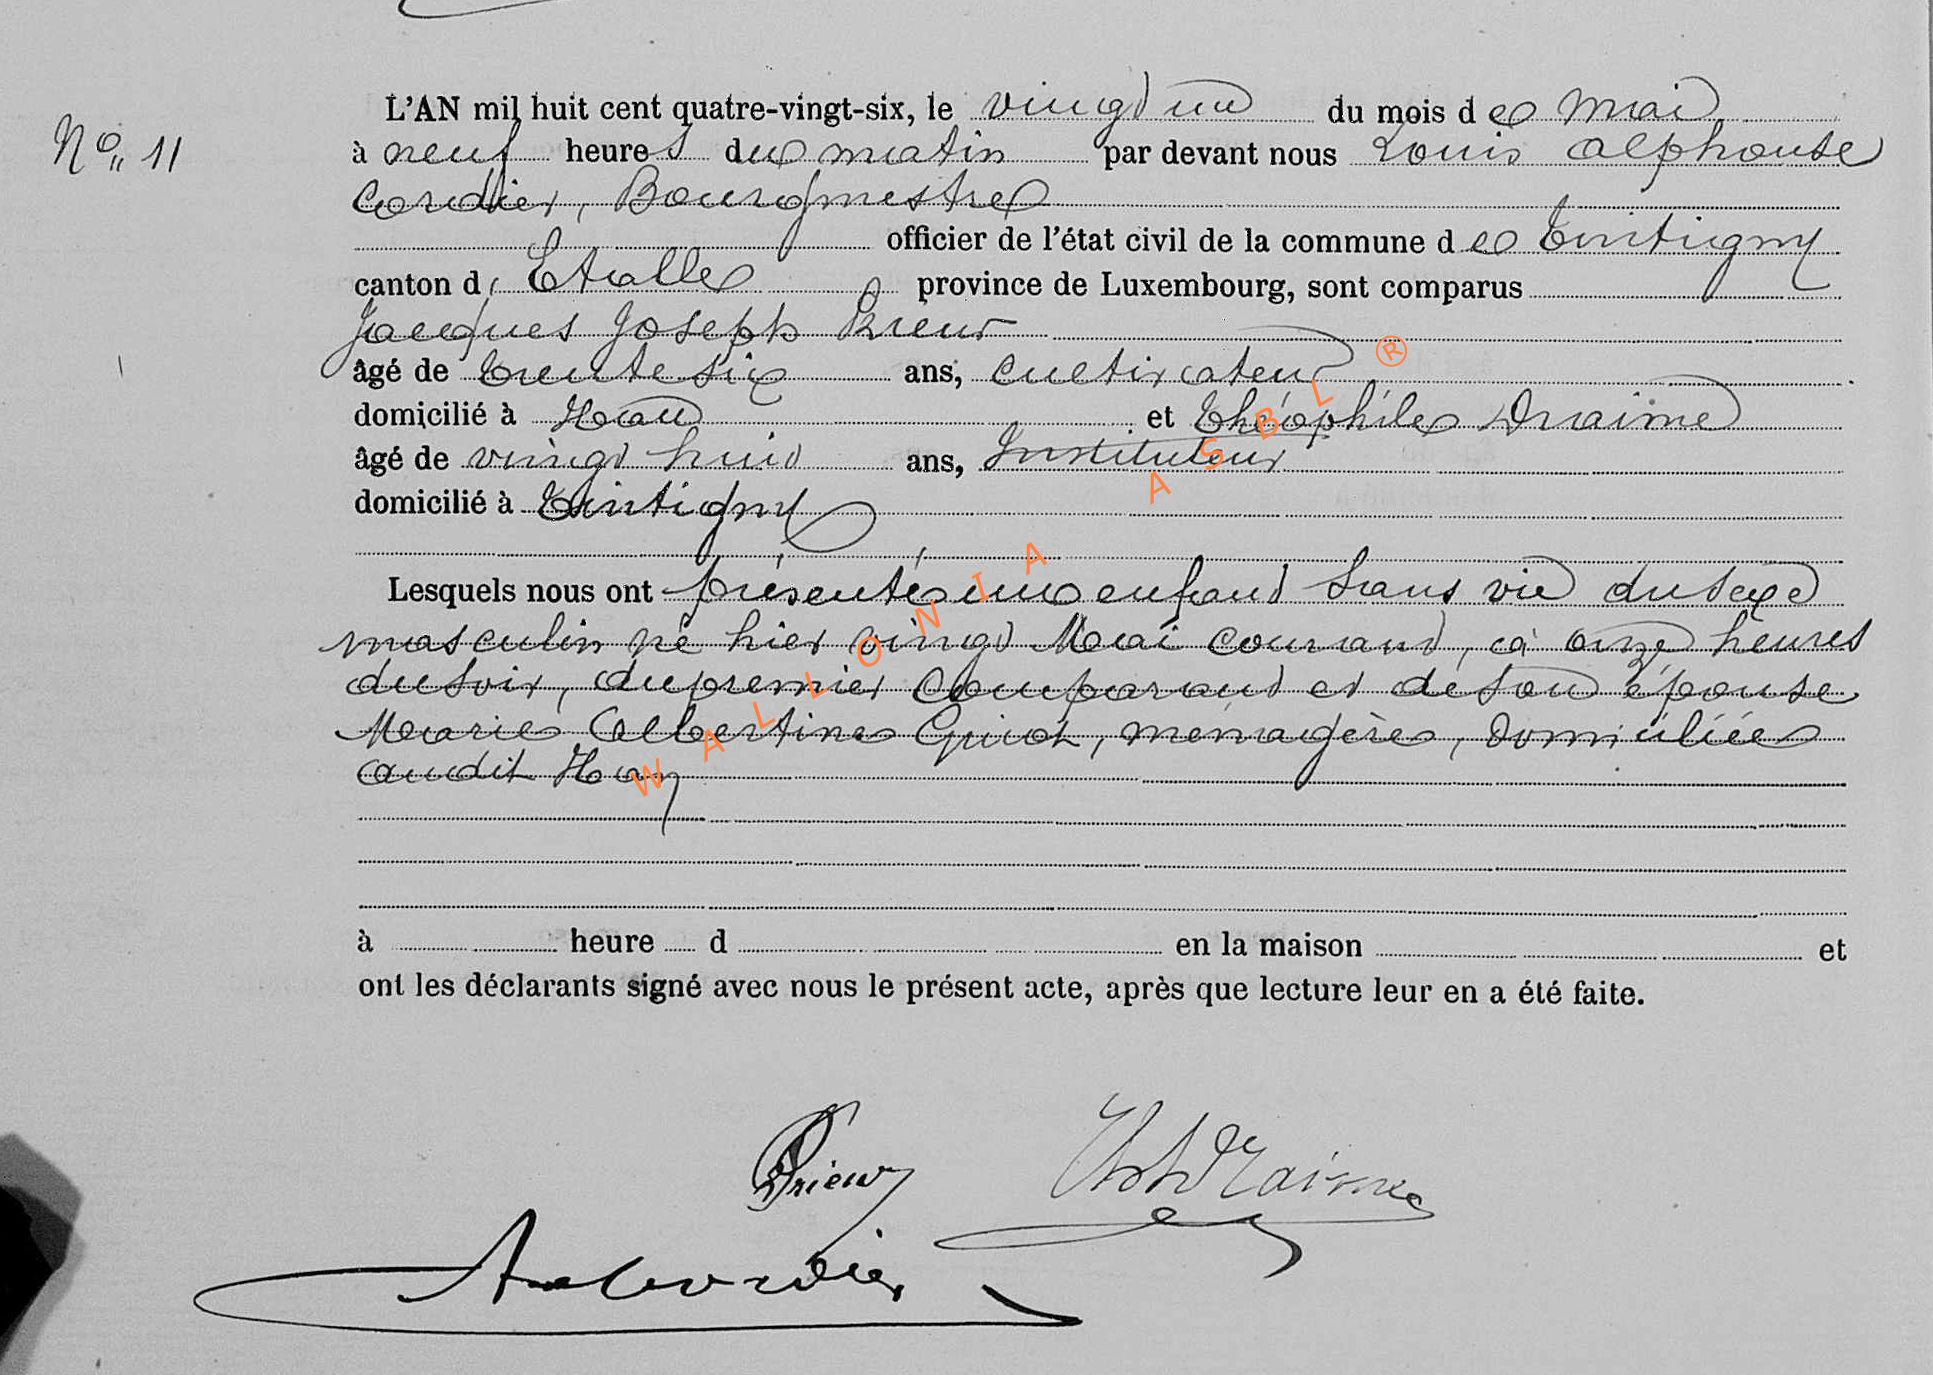 L'AN mil huit cent quatre-vingt-six, le vingt un du mois de Mai
N° 11
à neuf heures du matin par devant nous Louis Alphonse
Cordier, Bourgmestre
officier de l'état civil de la commune de Tintigny
canton d' Etalle province de Luxembourg, sont comparus
Jacques Joseph Prieur
âgé de trente six ans, cultivateur
domicilié à Han et Théophile Draime
âgé de vingt huit ans, Instituteur
domicilié à Tintigny
Lesquels nous ont présenté un enfant sans vie du sexe
masculin né hier vingt Mai courant, à onze heures
du soir, du premier Comparant et de son épouse
Marie Albertine ménagère, domiciliée
audit Han
à heure d en la maison et
ont les déclarants signé avec nous le présent acte, après que lecture leur en a été faite.
Prieur Th Draime
A Cordier
WALLONIA ASBL ®